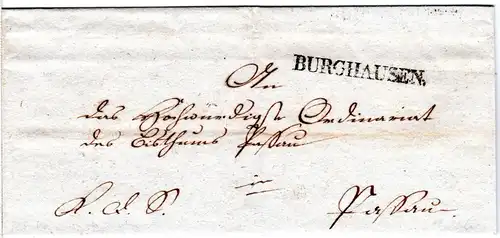 BURGHAUSEN.
An
das Hochwürdigste Ordinariat
des Bisthums Passau
in
R. d. S. Passau